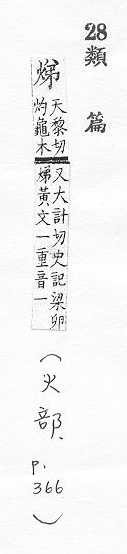 28類篇
焍 天黎切灼龜木
又大計切史記梁卯
焍黃文一重音一
(火部、p.366)